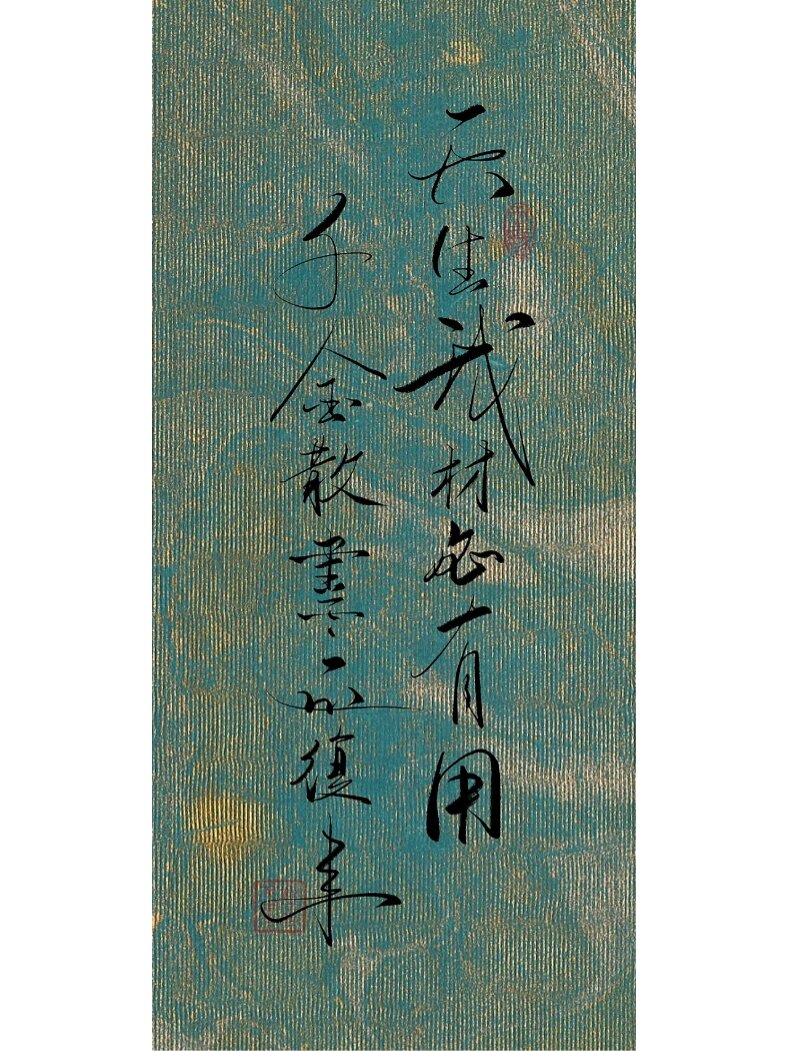 天生我材必有用
千金散盡还復来